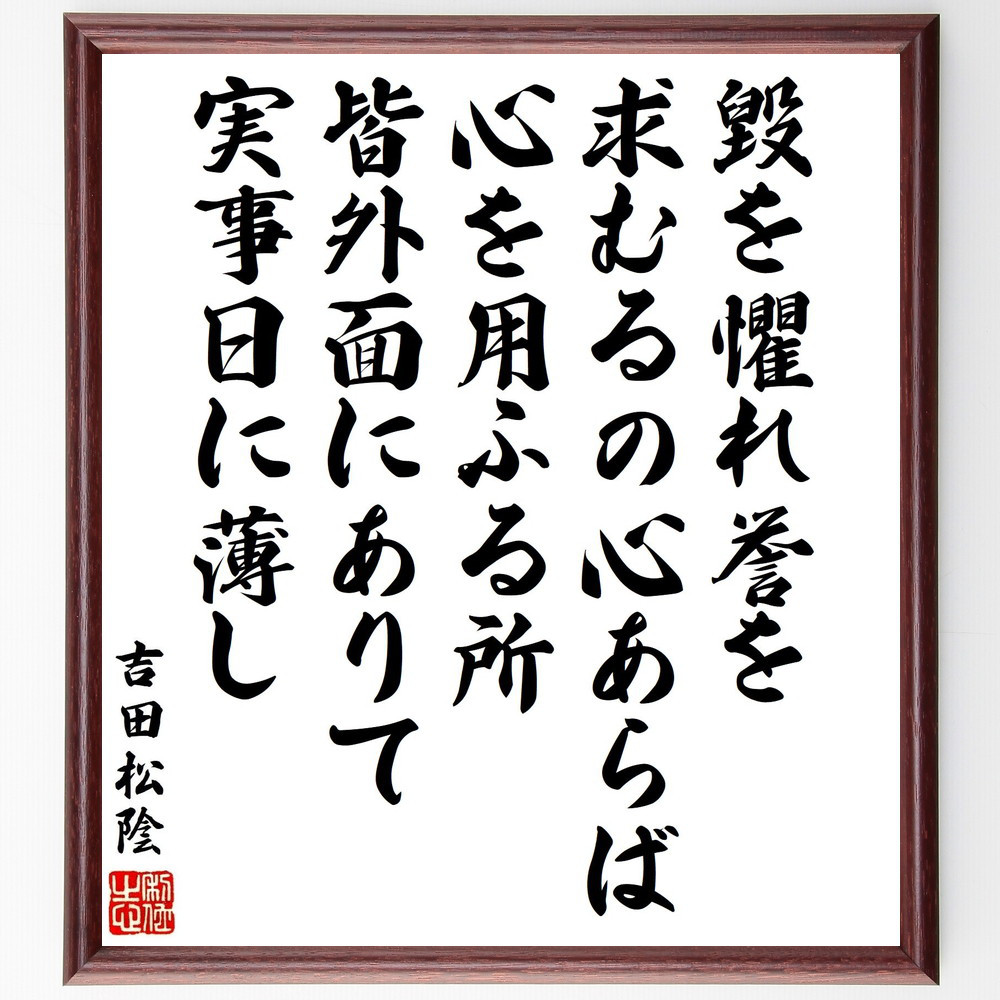 毀を懼れ誉を
求むるの心あらば
心を用ふる所
皆外面にありて
実事日に薄し
吉田松陰